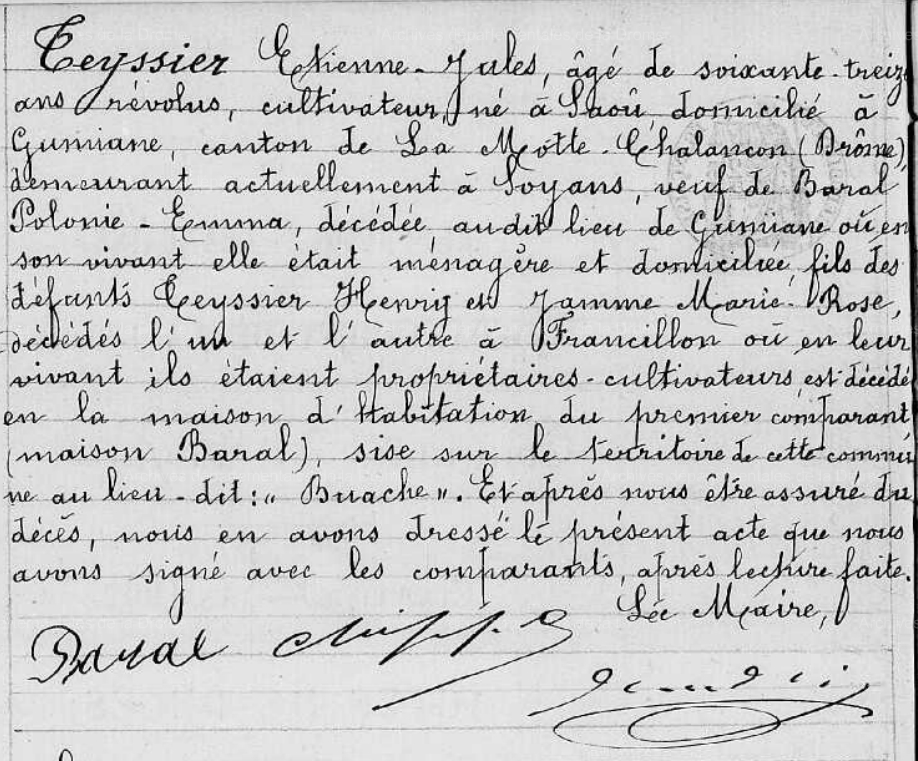 Teyssier Etienne-Jules, âgé de soixante-treize
ans révolus, cultivateur, né à Saoû, domicilié à
Gumiane, canton de La Motte-Chalancon (Drôme),
demeurant actuellement à Soyans, veuf de Baral
Polonie-Emma, décédée audit lieu de Gumiane où en
son vivant elle était ménagère et domiciliée, fils des
défunts Teyssier Henry et Jamme Marie-Rose,
décédés l'un et l'autre à Francillon où en leur
vivant ils étaient propriétaires-cultivateurs, est décédé
en la maison d'habitation du premier comparant
(maison Baral), sise sur le territoire de cette commu
ne au lieu-dit: « Buache ». Et après nous être assuré du
décès, nous en avons dressé le présent acte que nous
avons signé avec les comparants, après lecture faite.
Le Maire,
Baral